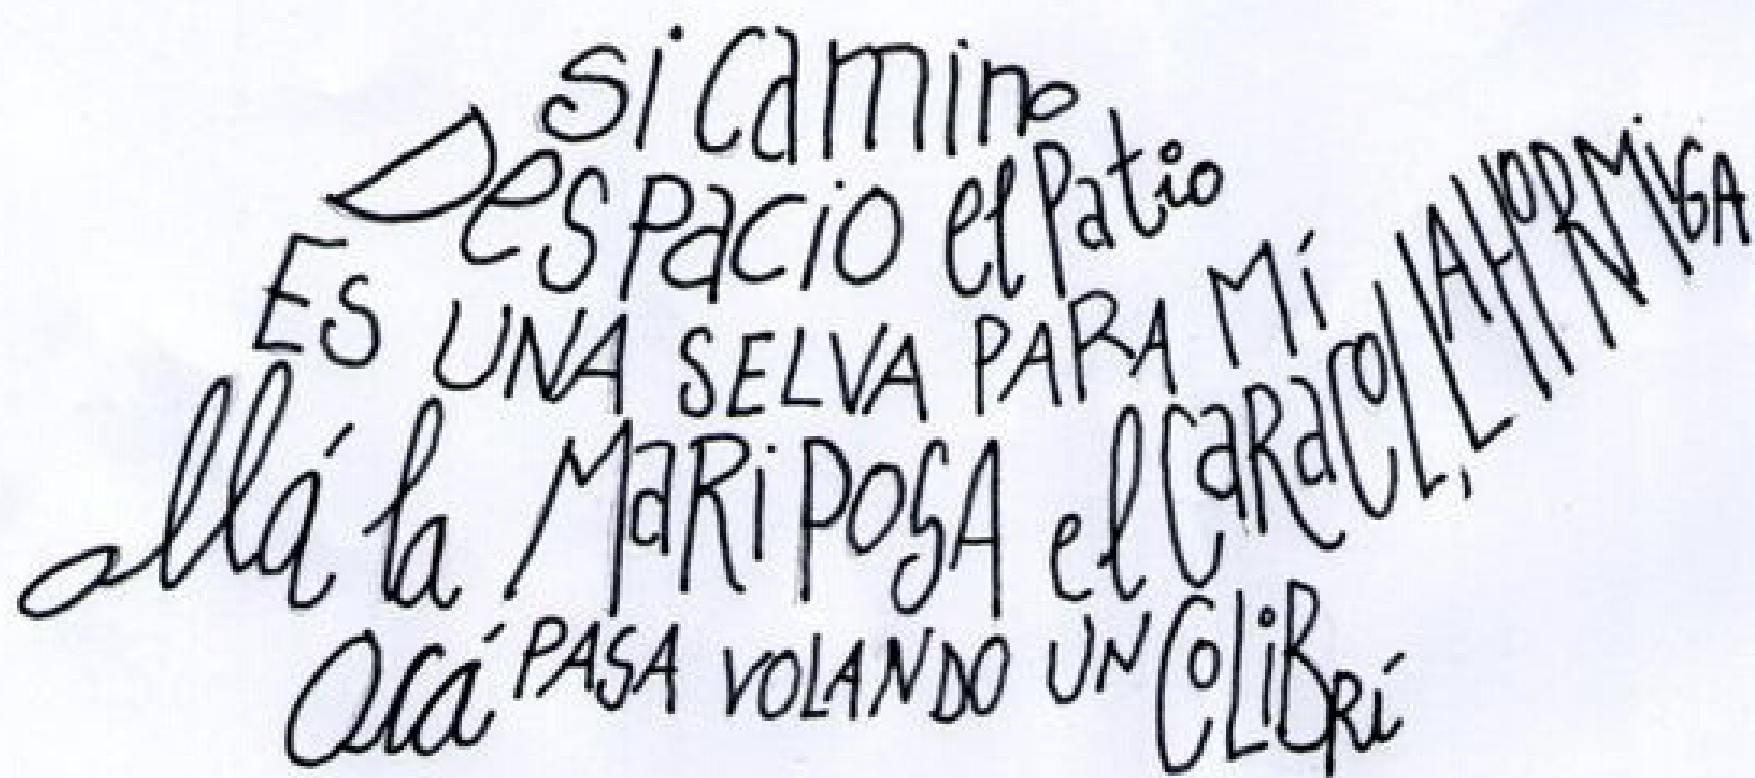 si camino
Despacio el patio
ES UNA SELVA PARA Mí
allá la MaRiPOSA el CaRaCOL, LA HORMiGA
acá PASA VOLANDO UN COLiBRí